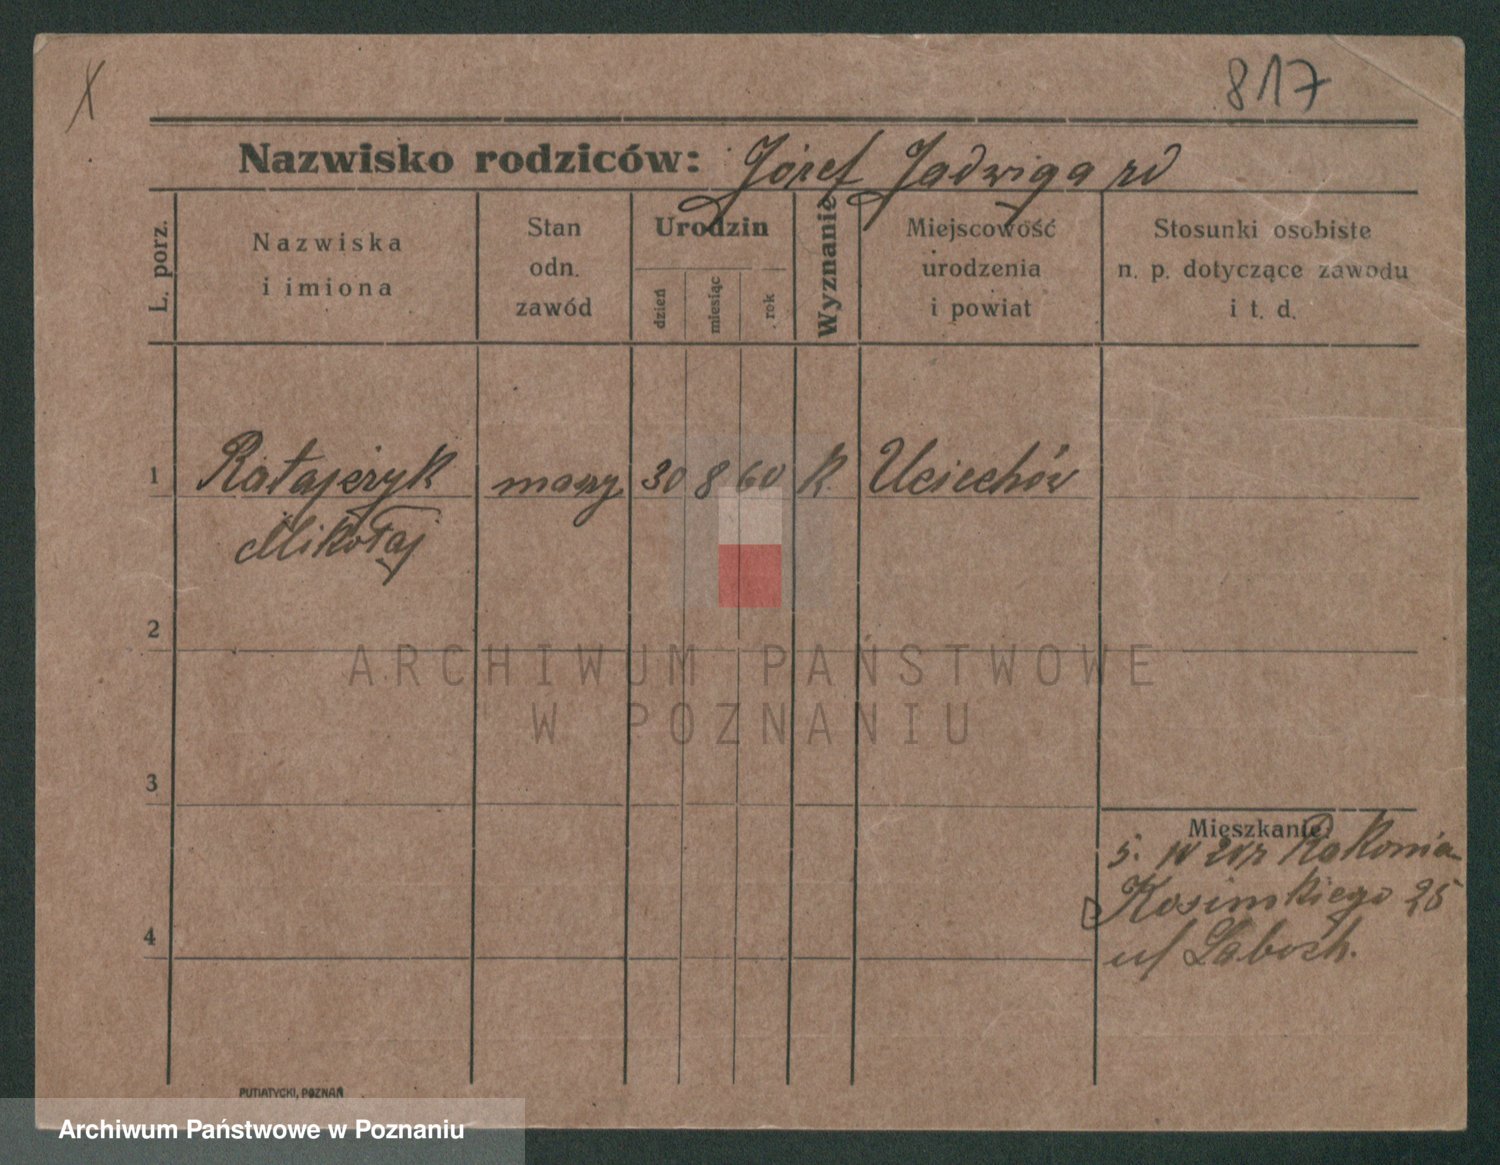 X
817
Nazwisko rodziców: Józef Jadwiga rd
L. porz.
Nazwiska
i imiona
Stan
odn.
zawód
Urodzin
dzień
miesiąc
rok
Wyznanie
Miejscowość
urodzenia
i powiat
Stosunki osobiste
n. p. dotyczące zawodu
i t. d.
1 Ratajczyk 30 8 60 k. Uciechów
Mikołaj
2
ARCHIWUM PAŃSTWOWE
W POZNANIU
3
Mieszkanie:
5. IV
25
4
PUTIATYCKI, POZNAŃ
Archiwum Państwowe w Poznaniu